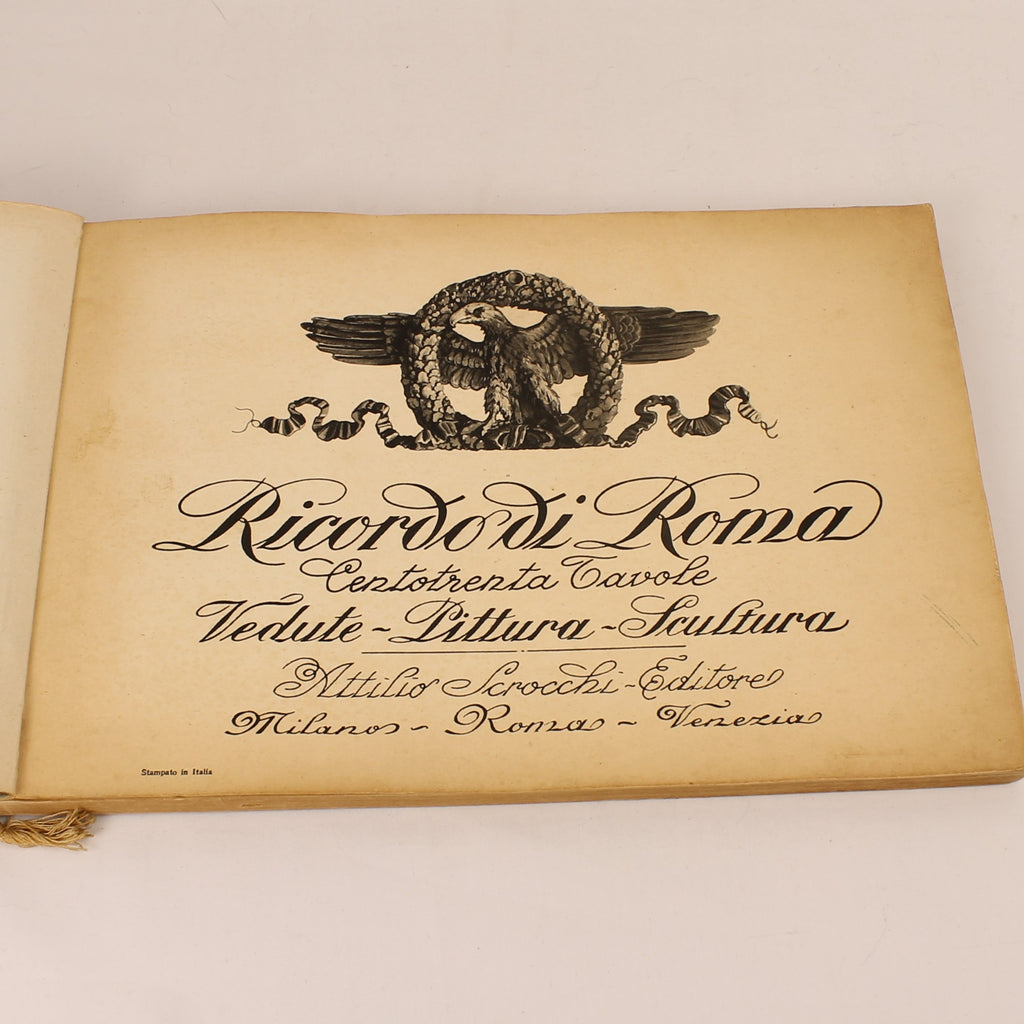 Ricordo di Roma
Centotrenta Tavole
Vedute - Pittura - Scultura
Attilio Scrocchi - Editore
Milano - Roma - Venezia
Stampato in Italia